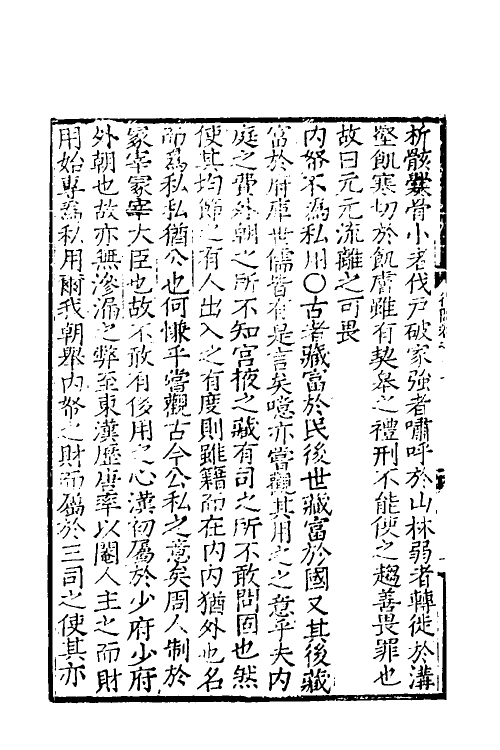 析骸爨骨小者伐戶破家強者嘯呼於山林弱者轉徙於溝
壑飢寒切於飢膚雖有契皋之禮刑不能使之趨善畏罪也
故曰元元流離之可畏
內帑不爲私用〇古者藏富於民後世藏富於國又其後藏
富於府庫世儒皆有是言矣噫亦嘗觀其用之之意乎夫內
庭之費外朝之所不知宮掖之藏有司之所不敢問固也然
使其均節之有人出入之有度則雖籍而在內內猶外也名
而爲私私猶公也何慊乎嘗觀古今公私之意矣周人制於
冢宰冢宰大臣也故不敢有後用之心漢初屬於少府少府
外朝也故亦無滲漏之弊至東漢歷唐率以閹人主之而財
用始專爲私用爾我朝舉內帑之財而屬於三司之使其亦